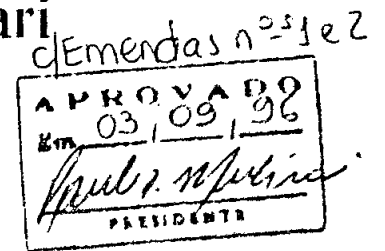 ari
c/Emendas nºs 1 e 2
APROVADO
Em 03/09/96
PRESIDENTE